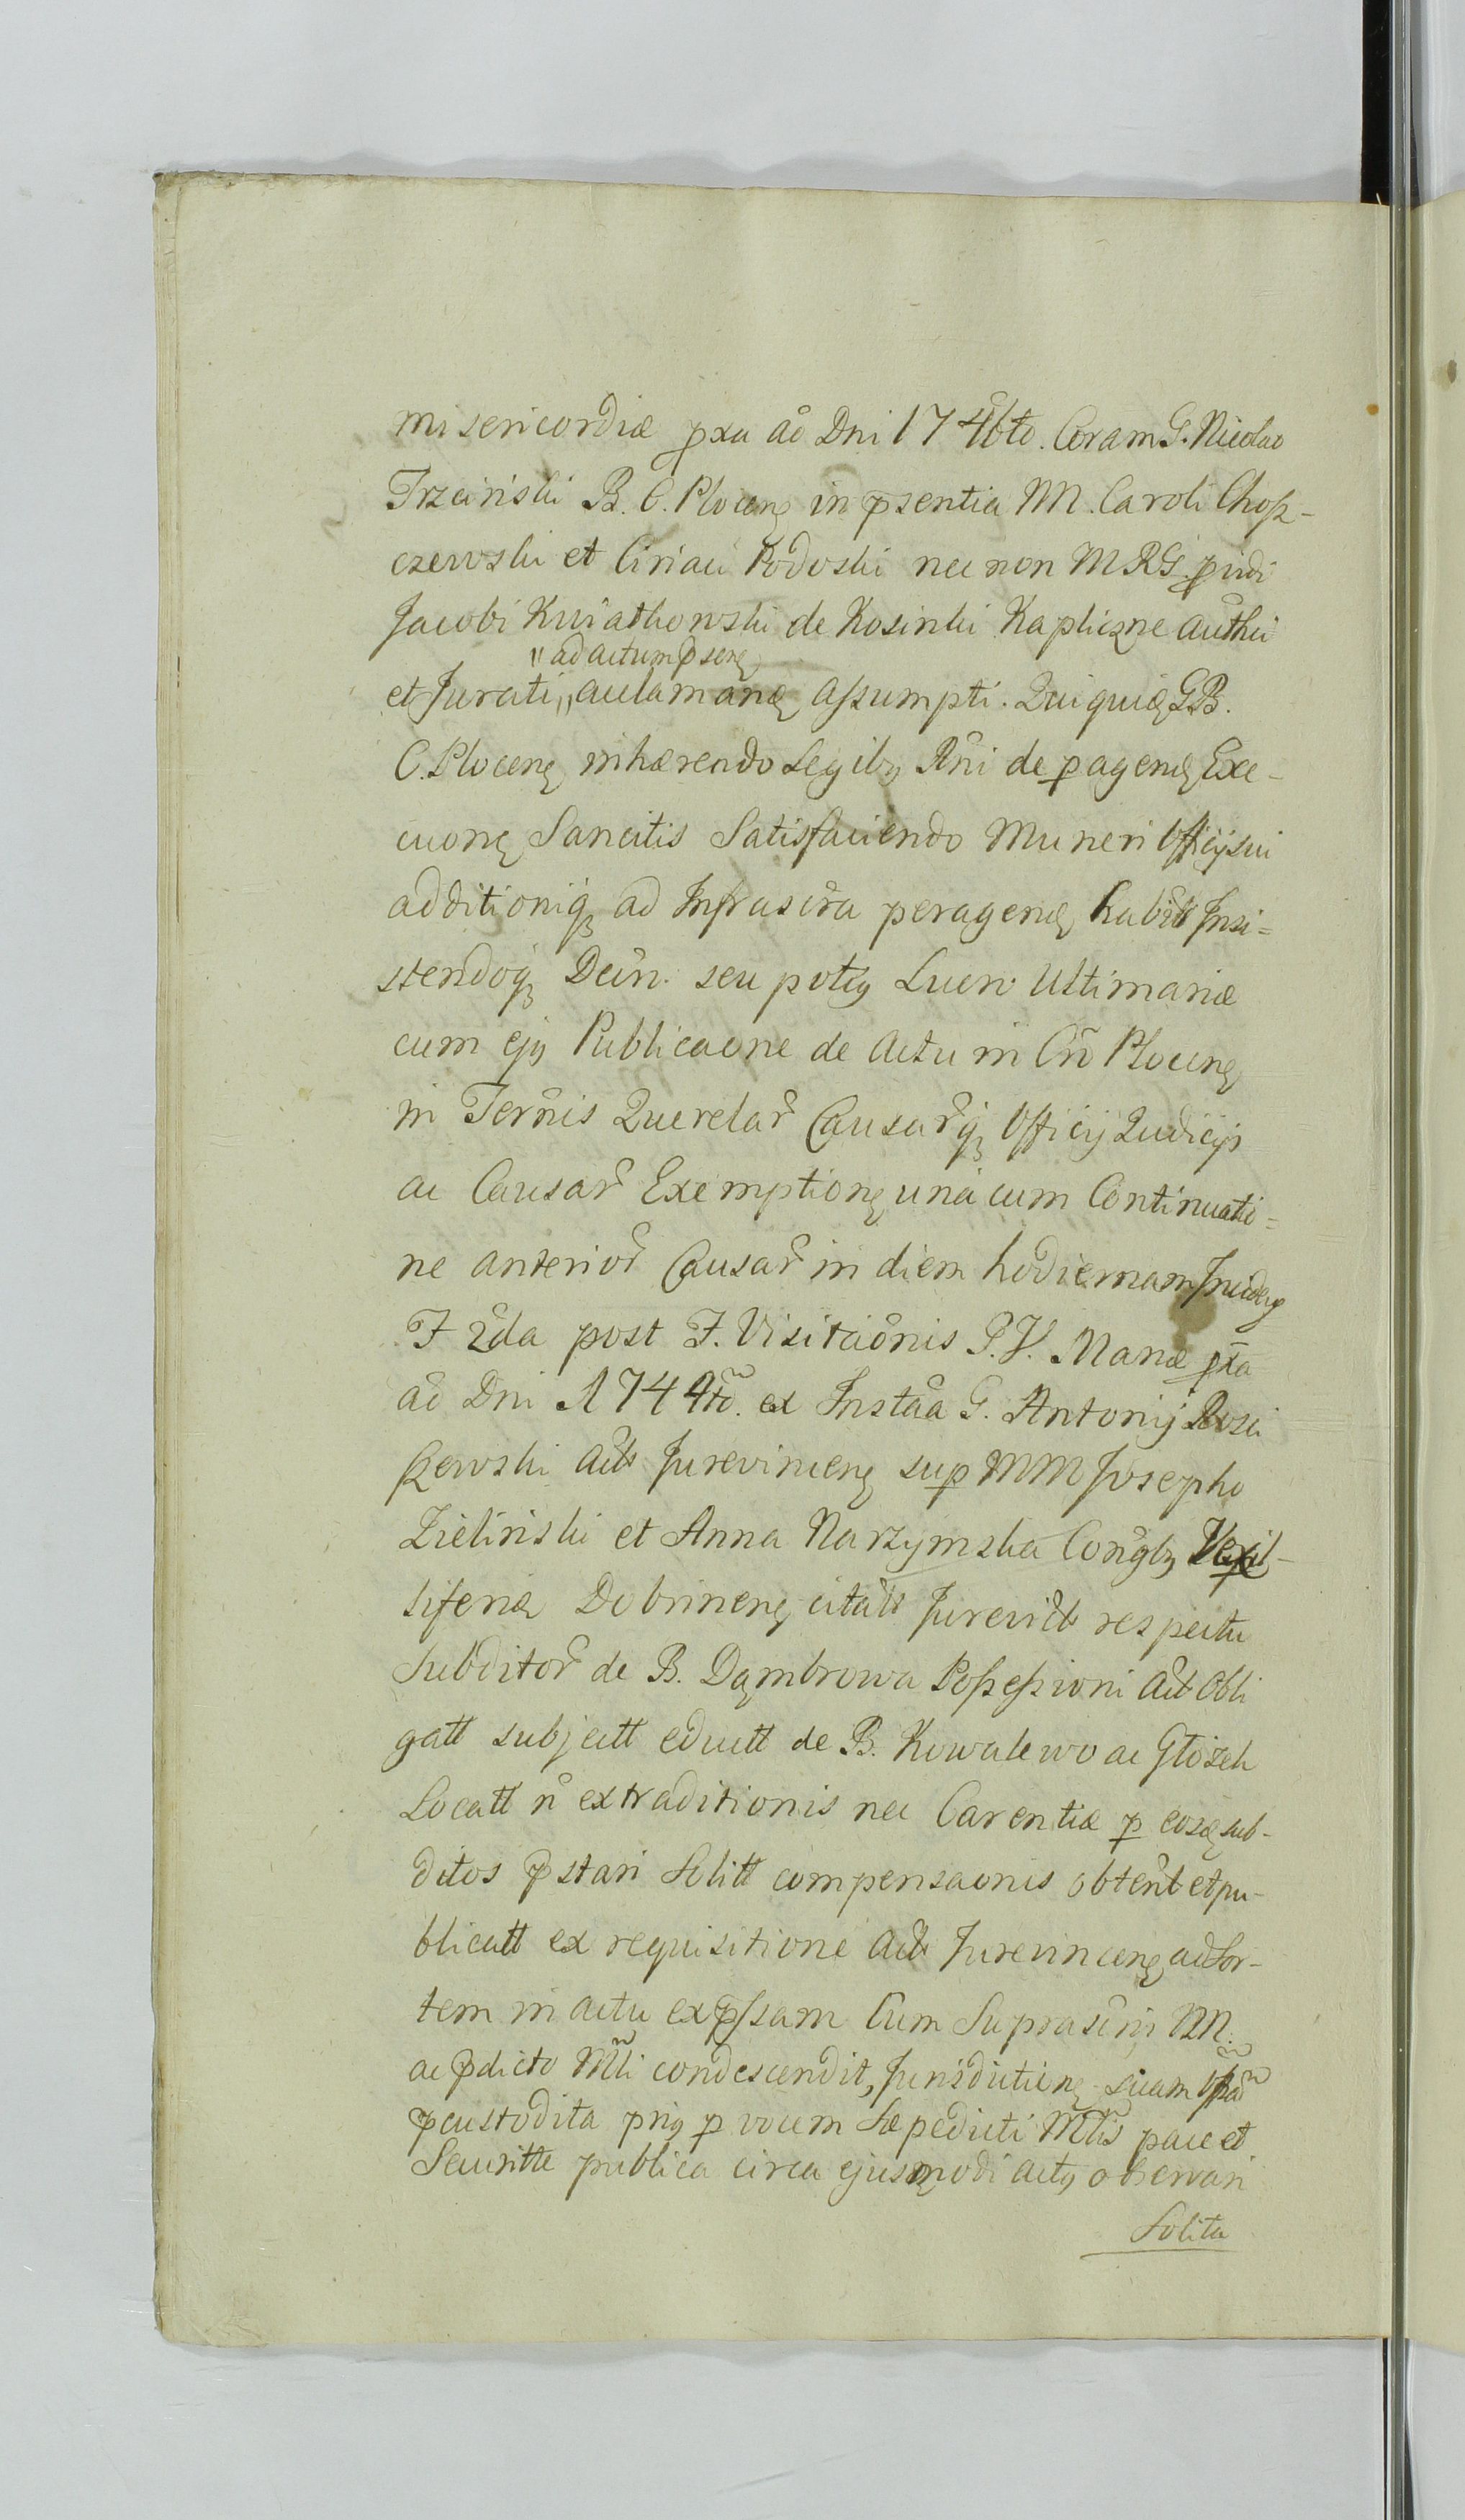 misericordiæ pxa aō Dni 1746to. Coram G. Nicolao
Trzcinski B. C. Plocenę in p̄sentia M. Caroli Chosz-
czewski et Ciriaci Podoski nec non MRG. pividi
Jacobi Kwiatkowski de Kosinki Kapliczne authci
"ad actum p̄senę
et Jurati,, aclamanę assumpti. Qui quidę GB.
C. Plocenę inhærendo Legibꝫ Rni de peragenę Exe-
cuonę Sancitis Satisfaciendo Muneri Officij sui
additioniqꝫ ad Infrascra peragenę habit Insi=
stendoqꝫ Decn. seu potiꝯ Lucri Ultimariæ
cum ejꝯ Publicaone de actu in Crō Plocenę
in Ternis Querelar Causarqꝫ Officij Iudicijs
ac Causar Exemptionę unà cum Continuatio=
ne anterior Causar in diem hodiernam Incidenę
F 2da post F. Visitaōnis P. V. Mariæ pxa
aō Dni 1744to. ex Instāa G. Antonij Rosci
szewski act Jurevincenę sup MM Josepho
Zielinski et Anna Narzymska Coniugbꝫ Vexil-
liferiæ Dobrinenę citatt Jurevict respectu
Subditor de B. Dąmbrowa Possessioni act obli
gatt subjectt eductt de B. Kowalewo ac Głożek
Locatt n extraditionis nec Carentiæ p eosdę sub-
ditos p̄stari Solitt compensaonis obtent et pu-
blicatt ex requisitione act Jurevincenę ad Sor-
tem in actu exp̄ssam Cum Suprascriptis NN.
ac p̄dicto Mlī condescendit, Jurisdictionę suam
p̄custodita priꝯ p vocem Sæpedicti Mlīs pace et
Securitte publica circa ejusmodi actꝯ observari
Solita